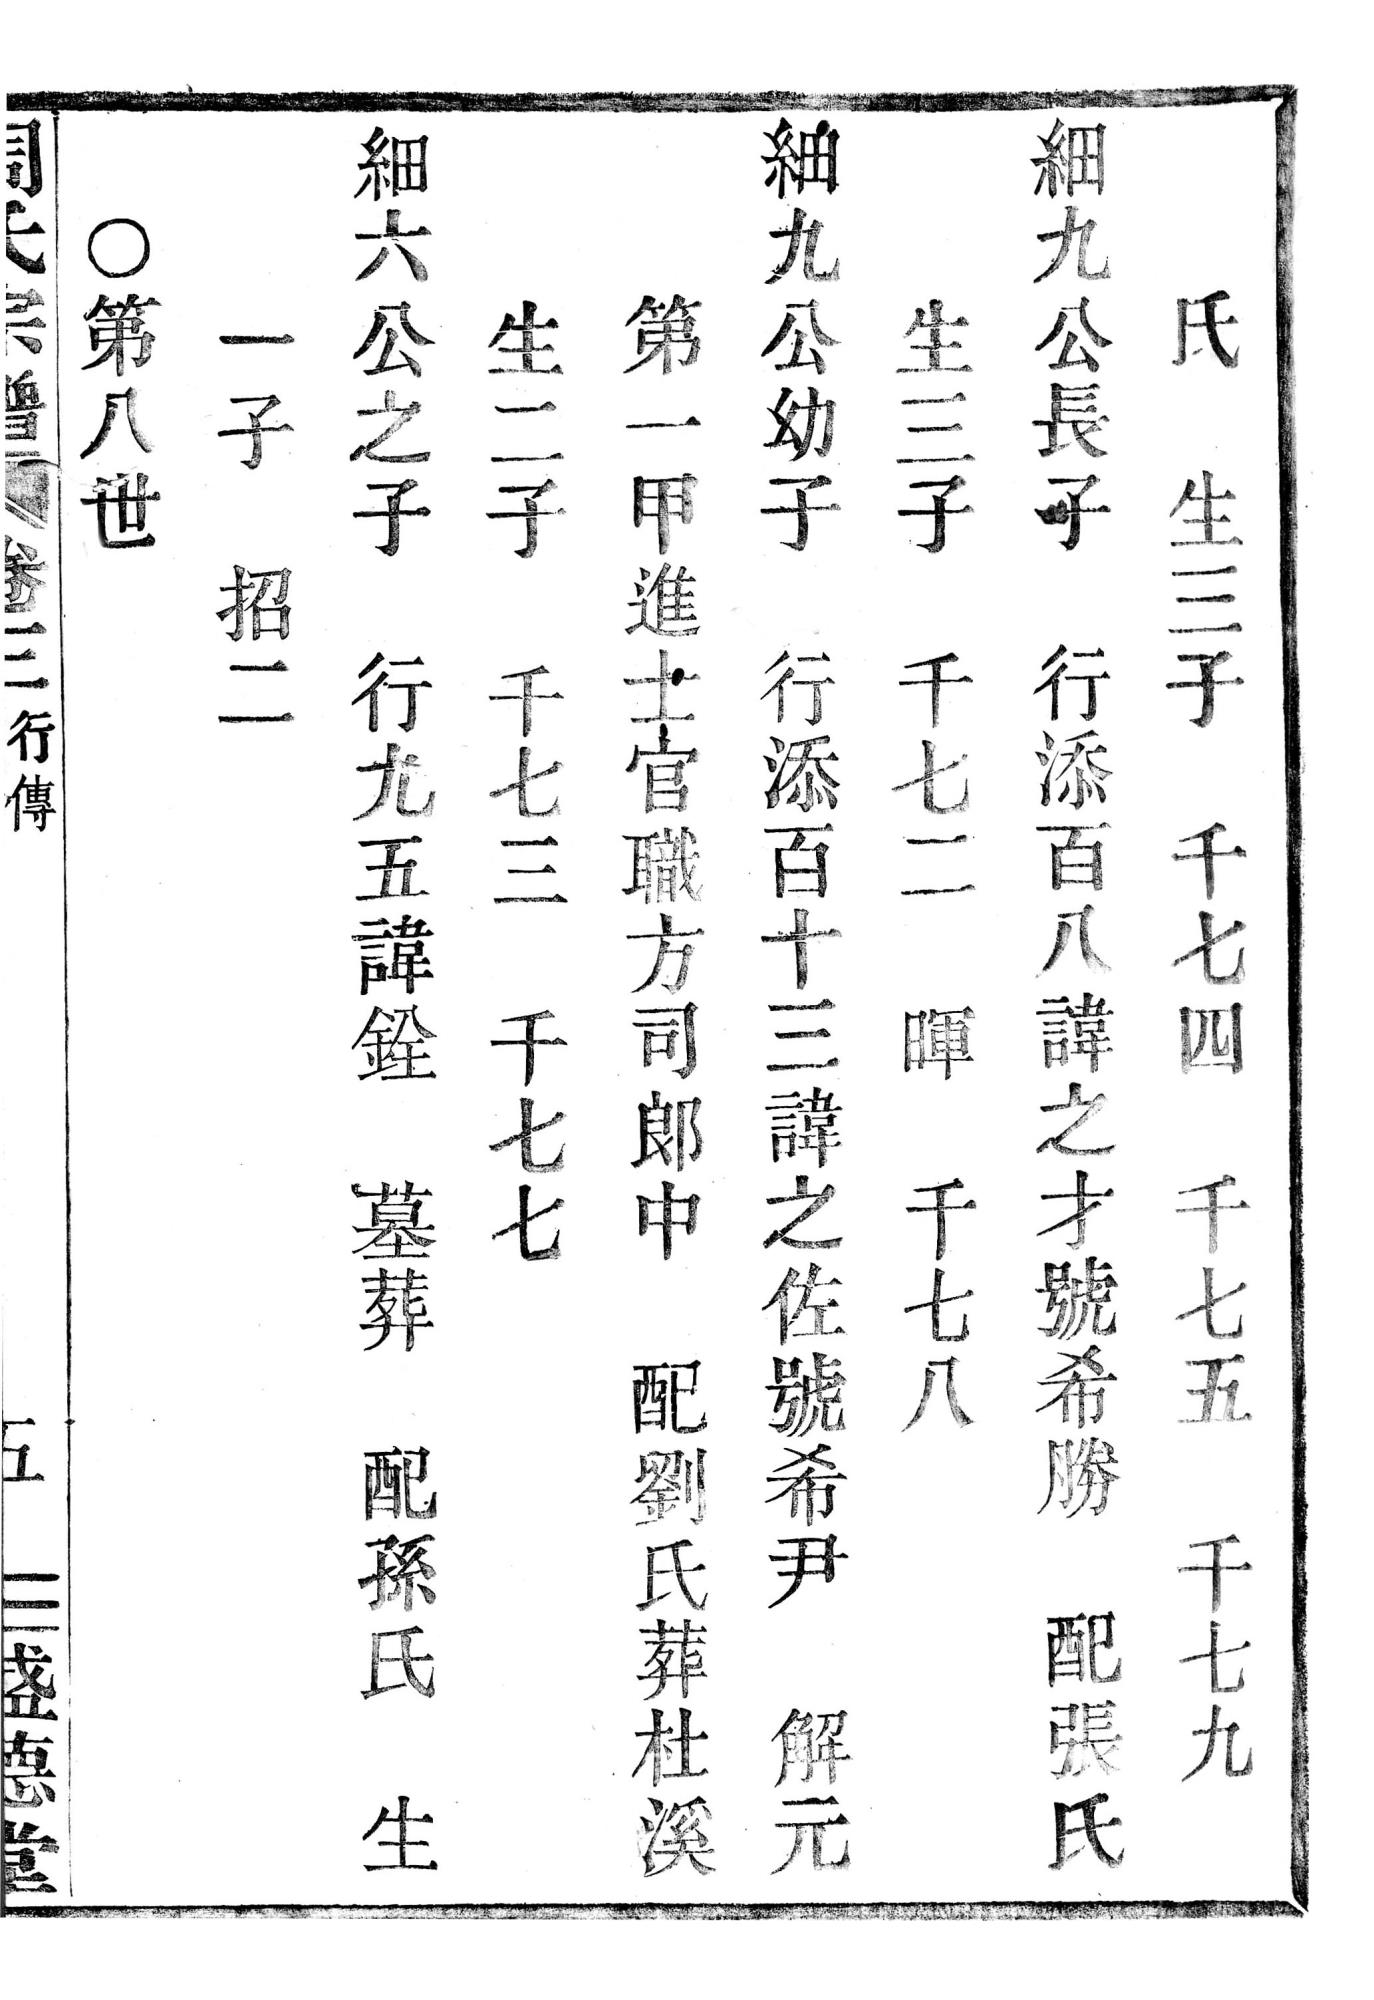 氏　生三子　千七四　千七五　千七九
細九公長子　行添百八諱之才號希勝　配張氏
生三子　千七二　暉　千七八
細九公幼子　行添百十三諱之佐號希尹　解元
第一甲進士官職方司郎中　配劉氏葬杜溪
生二子　千七三　千七七
細六公之子　行尤五諱銓　墓葬　配孫氏　生
一子　招二
〇第八世
周氏宗譜　卷二　行傳　五　三盛德堂